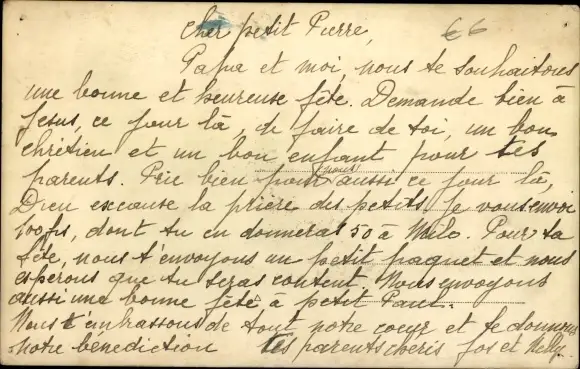 Cher petit Pierre, 66
Papa et moi, nous te souhaitons
une bonne et heureuse fête. Demande bien à
Jesus, ce jour là, de faire de toi, un bon
chrétien et un bon enfant pour tes
parents. Prie bien pour nous aussi ce jour là,
Dieu exauce la prière des petits. Je vous envoi
100 frs, dont tu en donneras 50 à Milo. Pour ta
fête, nous t'envoyons un petit paquet et nous
esperons que tu seras content. Nous envoyons
aussi une bonne fête à petit Paul.
Nous t'embrassons de tout notre coeur et te donnons
notre benediction tes parents cheris Jos et Nelly.